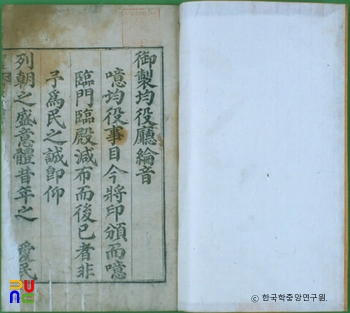 御製均役廳綸音
噫均役事目今將印頒而噫
臨門臨殿減布而後已者非
予爲民之誠卽仰
列朝之盛意體昔年之 愛民
RUNG
© 한국학중앙연구원